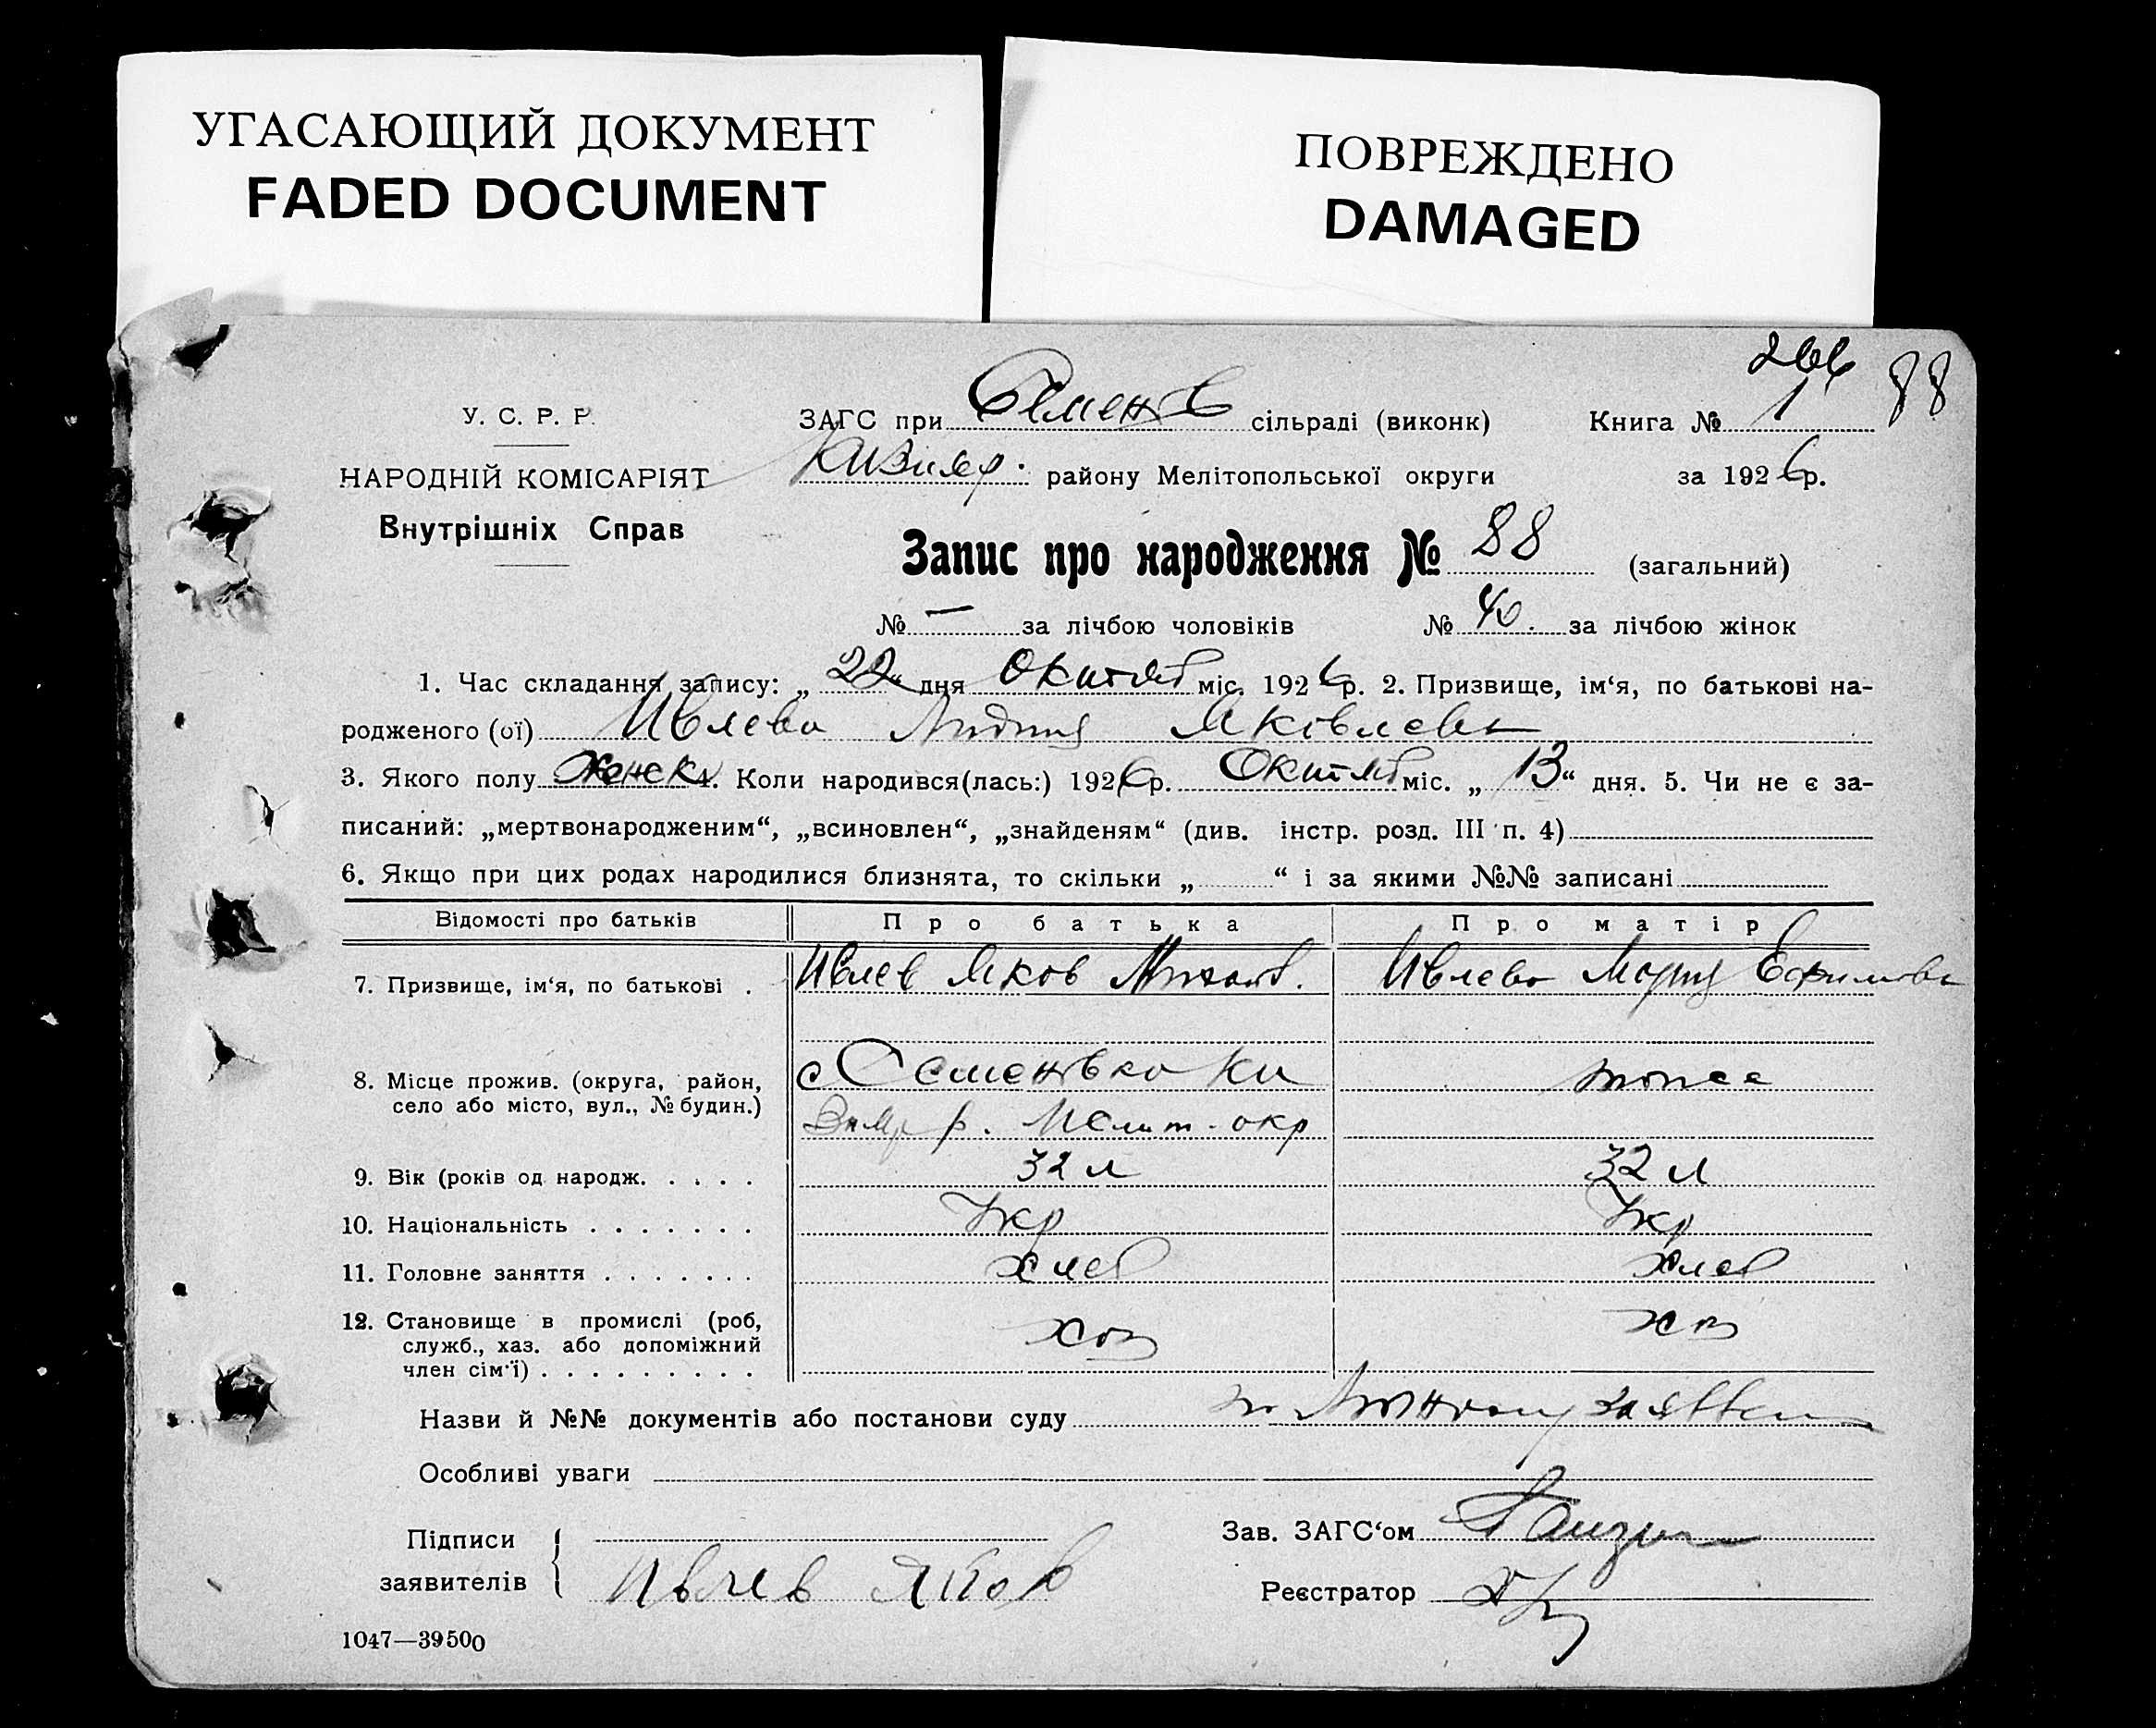 УГАСАЮЩИЙ ДОКУМЕНТ
FADED DOCUMENT
ПОВРЕЖДЕНО
DAMAGED
266
88
У. С. Р. Р.
НАРОДНІЙ КОМІСАРІЯТ
Внутрішніх Справ
ЗАГС при Семенов сільраді (виконк)
Книга № 1
Кизияр. району Мелітопольської округи
за 1926р.
Запис про народження № 88 (загальний)
№ — за лічбою чоловіків № 40. за лічбою жінок
1. Час складання запису: „22“ дня Октяб міс. 1926р. 2. Призвище, ім‘я, по батькові на-
родженого (ої) Ивлева Лидия Яковлевн
3. Якого полу женск 4. Коли народився(лась:) 1926р. Октяб міс. „13“ дня. 5. Чи не є за-
писаний: „мертвонародженим“, „всиновлен“, „знайденям“ (див. інстр. розд. III п. 4)
6. Якщо при цих родах народилися близнята, то скільки „ “ і за якими №№ записані
Відомості про батьків Про батька Про матір
7. Призвище, ім‘я, по батькові . Ивлев Яков Ивлева Мария Ефимовн
8. Місце прожив. (округа, район, село або місто, вул., № будин.) с Семеновка Ки тоже
зияр р. Мелит. окр
9. Вік (років од народж. . . . . 32 л 32 л
10. Національність . . . . . . . Укр Укр
11. Головне заняття . . . . . . . хлеб хлеб
12. Становище в промислі (роб, служб., хаз. або допоміжний член сім‘ї) . . . . . . . . . хоз хоз
Назви й №№ документів або постанови суду по личному заявлен
Особливі уваги
Підписи
заявителів
Ивлев Яков
Зав. ЗАГС‘ом
Реєстратор
1047—39500